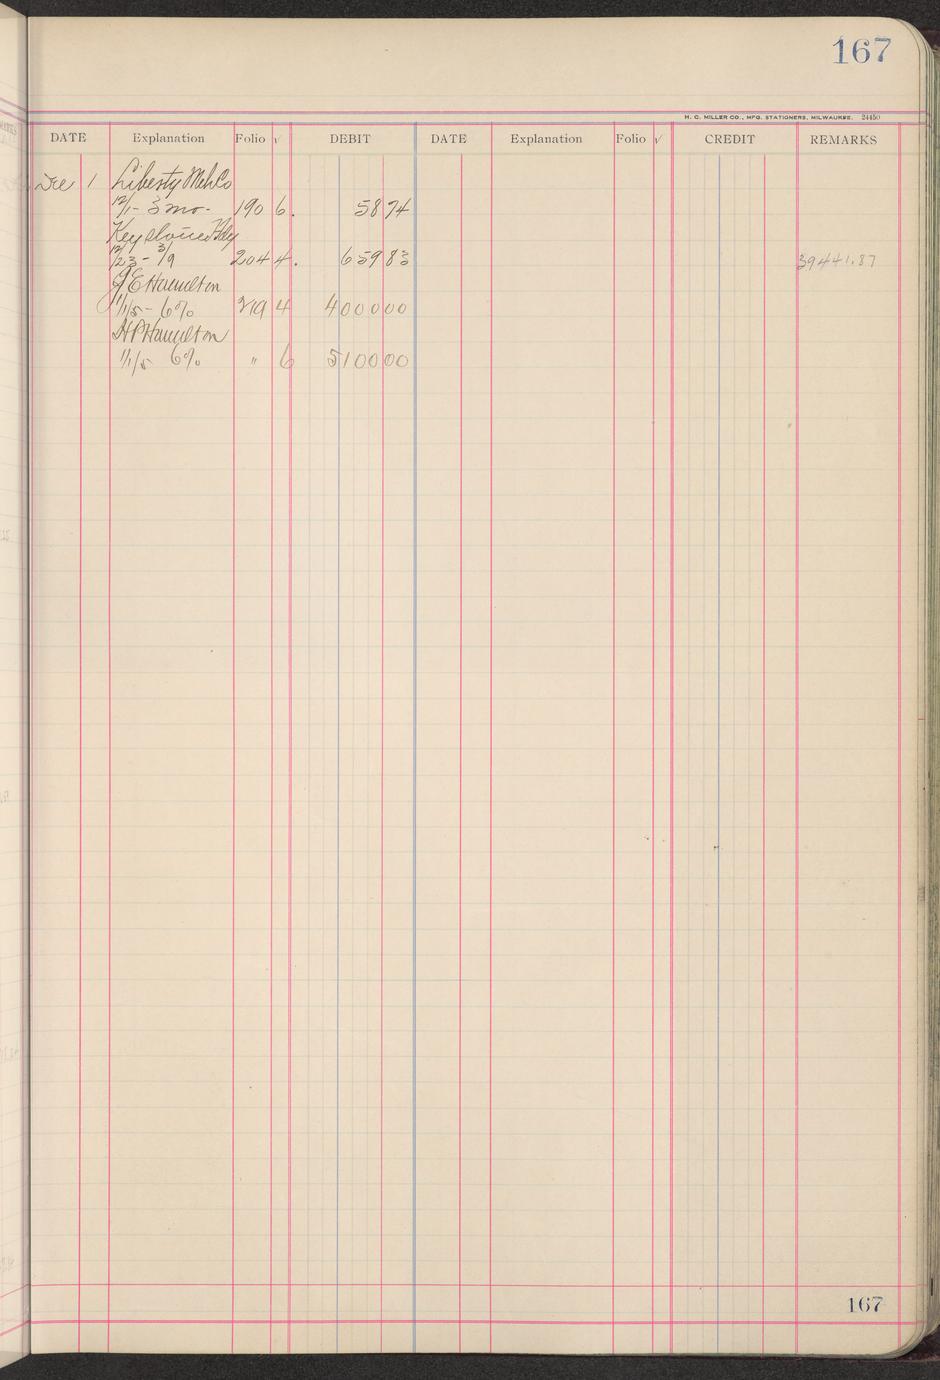 167
H. C. MILLER CO., MFG. STATIONERS, MILWAUKEE. 24450
DATE Explanation Folio √ DEBIT DATE Explanation Folio √ CREDIT REMARKS
Dec 1 Liberty Meh Co
12/1 - 3 mo - 190 6. 58 74
Keystone Fdy
12/23 - 3/9 204 4. 659 83 39441.87
J E Hamilton
11/15 - 6% 219 4 4000 00
H P Hamilton
1/1/5 6% " 6 5100 00
167